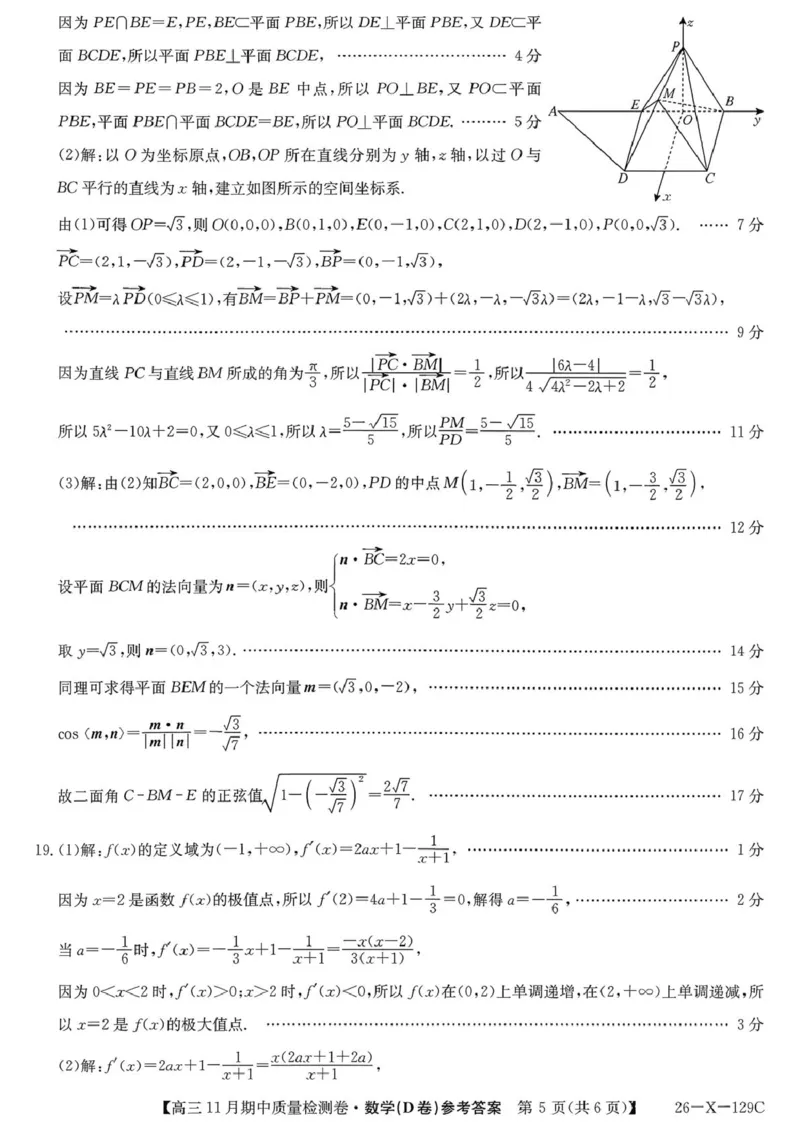 因为 PE∩BE=E,PE,BE⊂平面 PBE,所以 DE⊥平面 PBE,又 DE⊂平
面 BCDE,所以平面 PBE⊥平面 BCDE, …………………………… 4分
因为 BE=PE=PB=2,O 是 BE 中点,所以 PO⊥BE,又 PO⊂平面
PBE,平面 PBE∩平面 BCDE=BE,所以 PO⊥平面 BCDE. ……… 5分
z
P
A
E
M
B
O
y
D
C
x
(2)解:以 O 为坐标原点,OB,OP 所在直线分别为 y 轴,z 轴,以过 O 与
BC 平行的直线为 x 轴,建立如图所示的空间坐标系.
由(1)可得 OP=√3,则 O(0,0,0),B(0,1,0),E(0,−1,0),C(2,1,0),D(2,−1,0),P(0,0,√3). …… 7分
PC→=(2,1,−√3),PD→=(2,−1,−√3),BP→=(0,−1,√3),
设PM→=λPD→(0≤λ≤1),有BM→=BP→+PM→=(0,−1,√3)+(2λ,−λ,−√3λ)=(2λ,−1−λ,√3−√3λ),
…………………………………………………………………………… 9分
因为直线 PC 与直线 BM 所成的角为π/3,所以|PC→·BM→|/(|PC→|·|BM→|)=1/2,所以|6λ−4|/(4√(4λ²−2λ+2))=1/2,
所以 5λ²−10λ+2=0,又 0≤λ≤1,所以 λ=(5−√15)/5,所以PM/PD=(5−√15)/5. …………………………… 11分
(3)解:由(2)知BC→=(2,0,0),BE→=(0,−2,0),PD 的中点 M(1,−1/2,√3/2),BM→=(1,−3/2,√3/2),
…………………………………………………………………………… 12分
设平面 BCM 的法向量为 n=(x,y,z),则{n·BC→=2x=0,
n·BM→=x−3/2y+√3/2z=0,
取 y=√3,则 n=(0,√3,3). …………………………………………………………………… 14分
同理可求得平面 BEM 的一个法向量 m=(√3,0,−2), ………………………………………… 15分
cos⟨m,n⟩=m·n/(|m||n|)=−√3/√7, …………………………………………………………………… 16分
故二面角 C−BM−E 的正弦值√(1−(−√3/√7)²)=2√7/7. ………………………………………… 17分
19.(1)解:f(x)的定义域为(−1,+∞),f′(x)=2ax+1−1/(x+1), ………………………………… 1分
因为 x=2 是函数 f(x)的极值点,所以 f′(2)=4a+1−1/3=0,解得 a=−1/6, ………………………… 2分
当 a=−1/6时,f′(x)=−1/3x+1−1/(x+1)=−x(x−2)/(3(x+1)),
因为 0<x<2 时,f′(x)>0;x>2 时,f′(x)<0,所以 f(x)在(0,2)上单调递增,在(2,+∞)上单调递减,所
以 x=2 是 f(x)的极大值点. …………………………………………………………………… 3分
(2)解:f′(x)=2ax+1−1/(x+1)=x(2ax+1+2a)/(x+1),
【高三 11 月期中质量检测卷·数学(D 卷)参考答案 第 5 页(共 6 页)】 26−X−129C